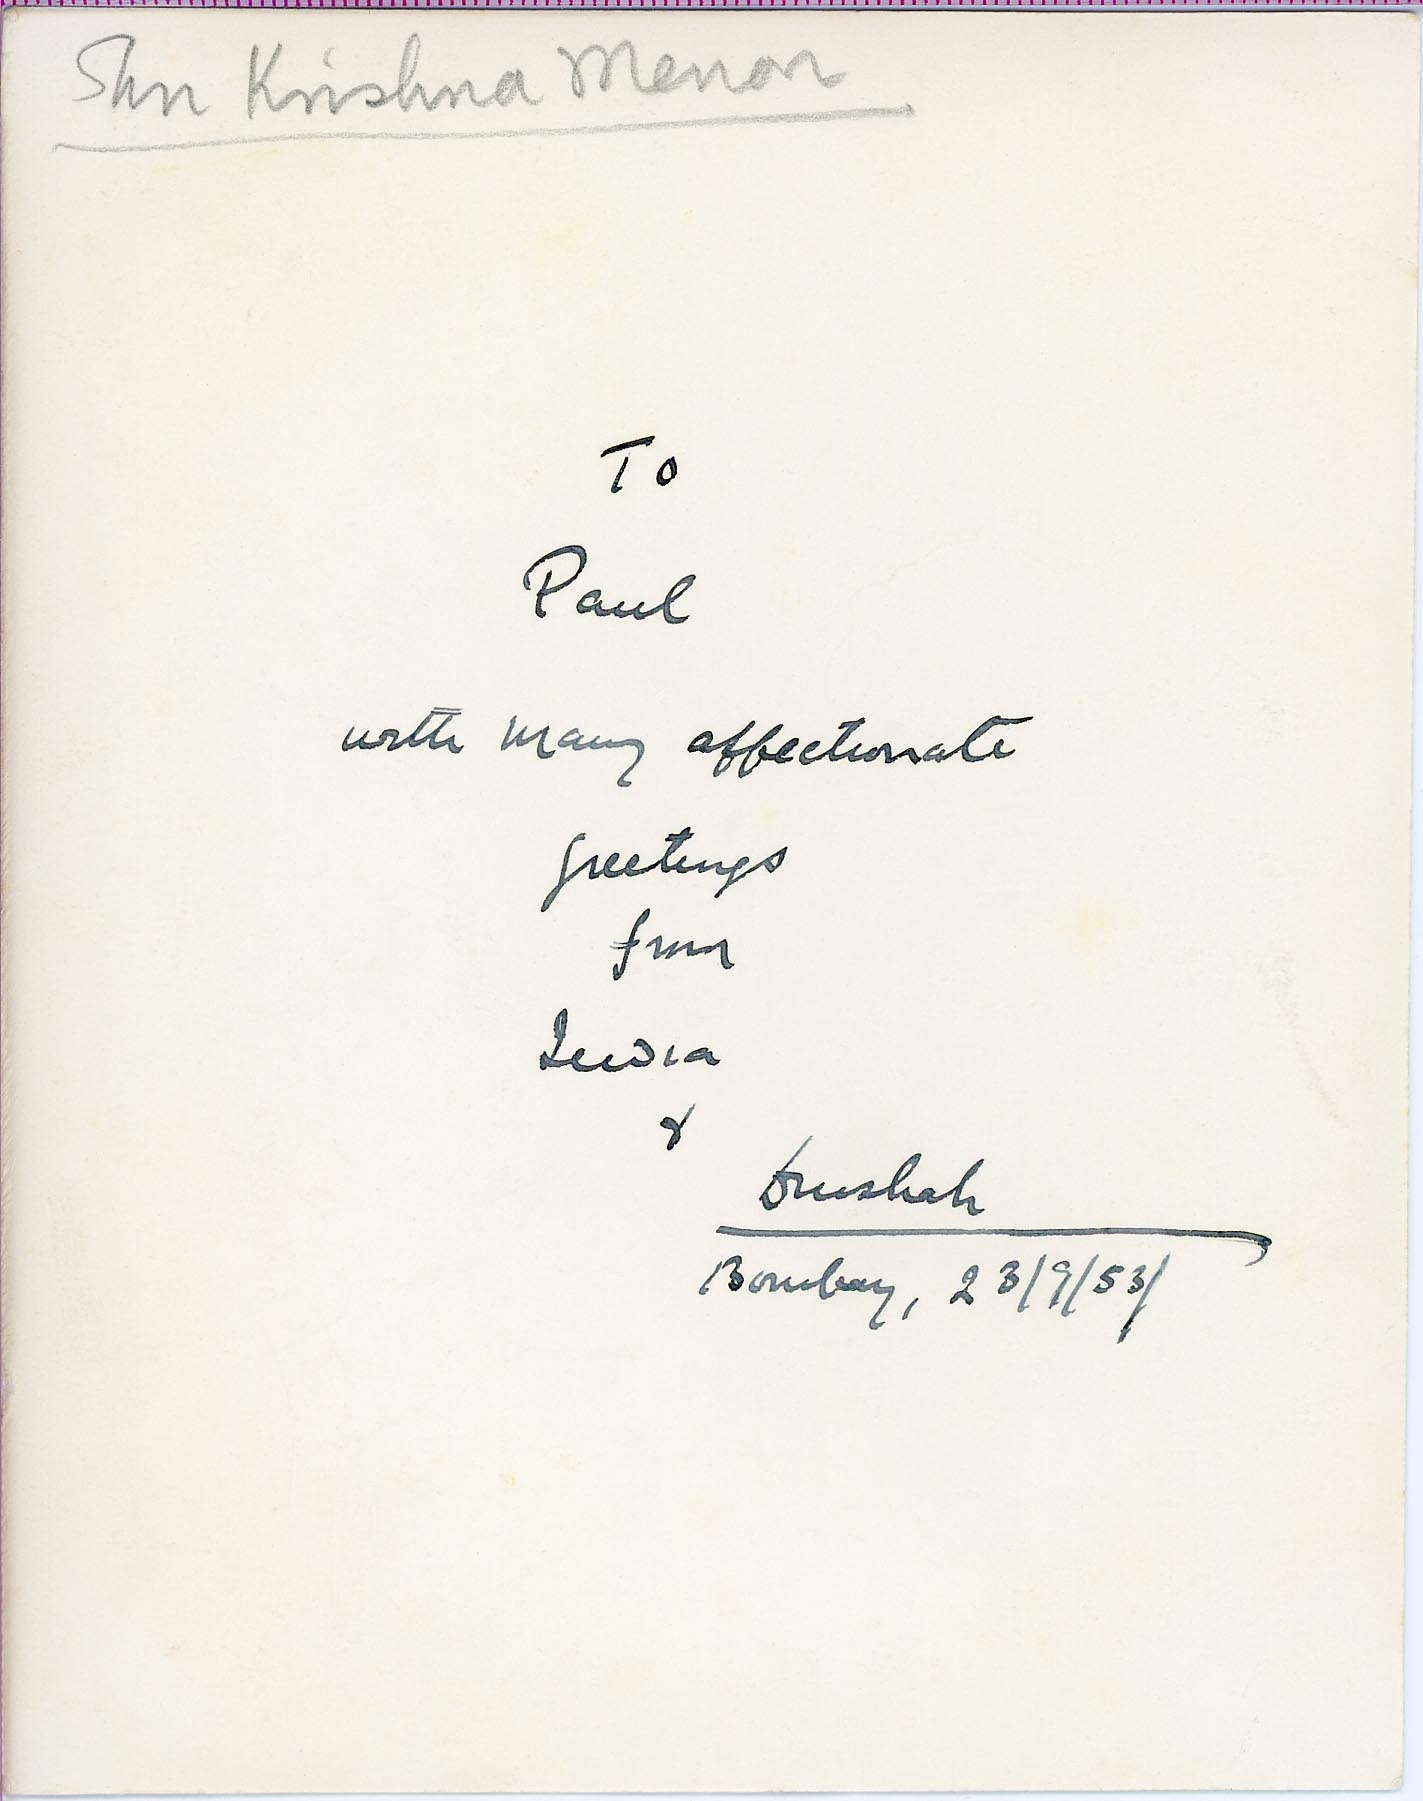 Shri Krishna Menon
To
Paul
with many affectionate
greetings
from
India
&
Bombay, 23/9/53/